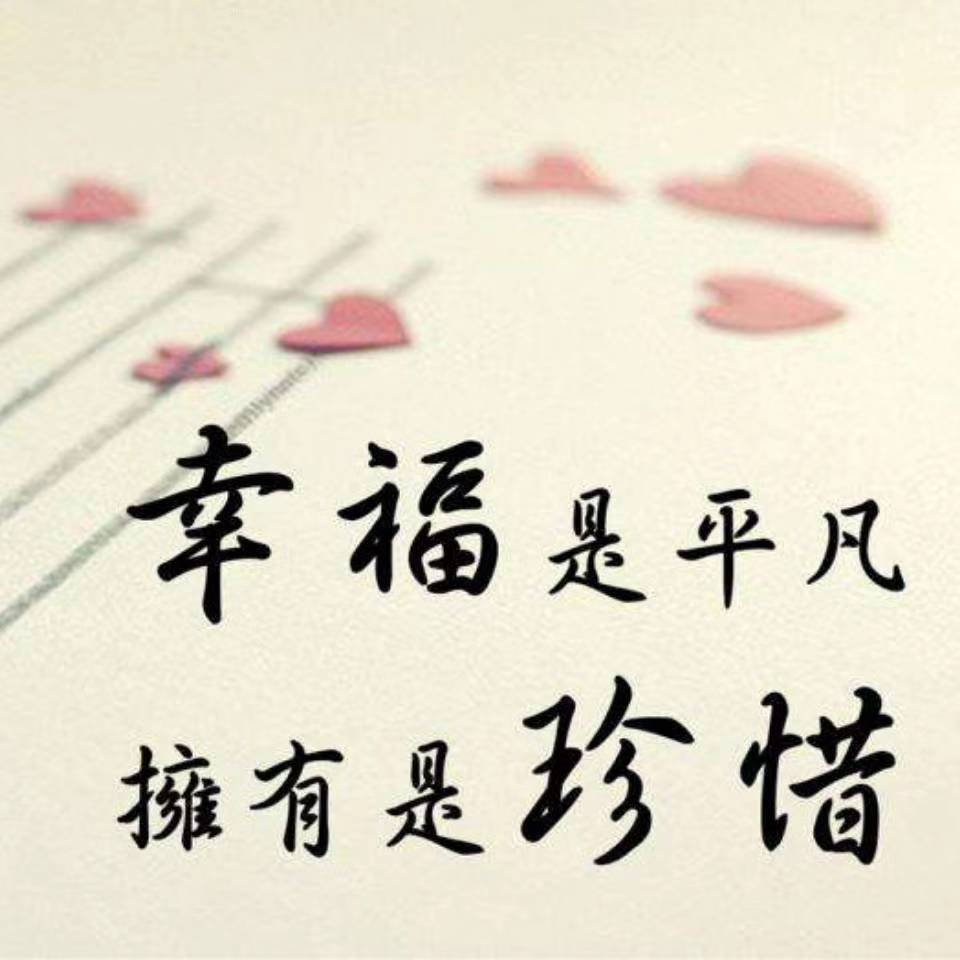 幸福是平凡
擁有是珍惜